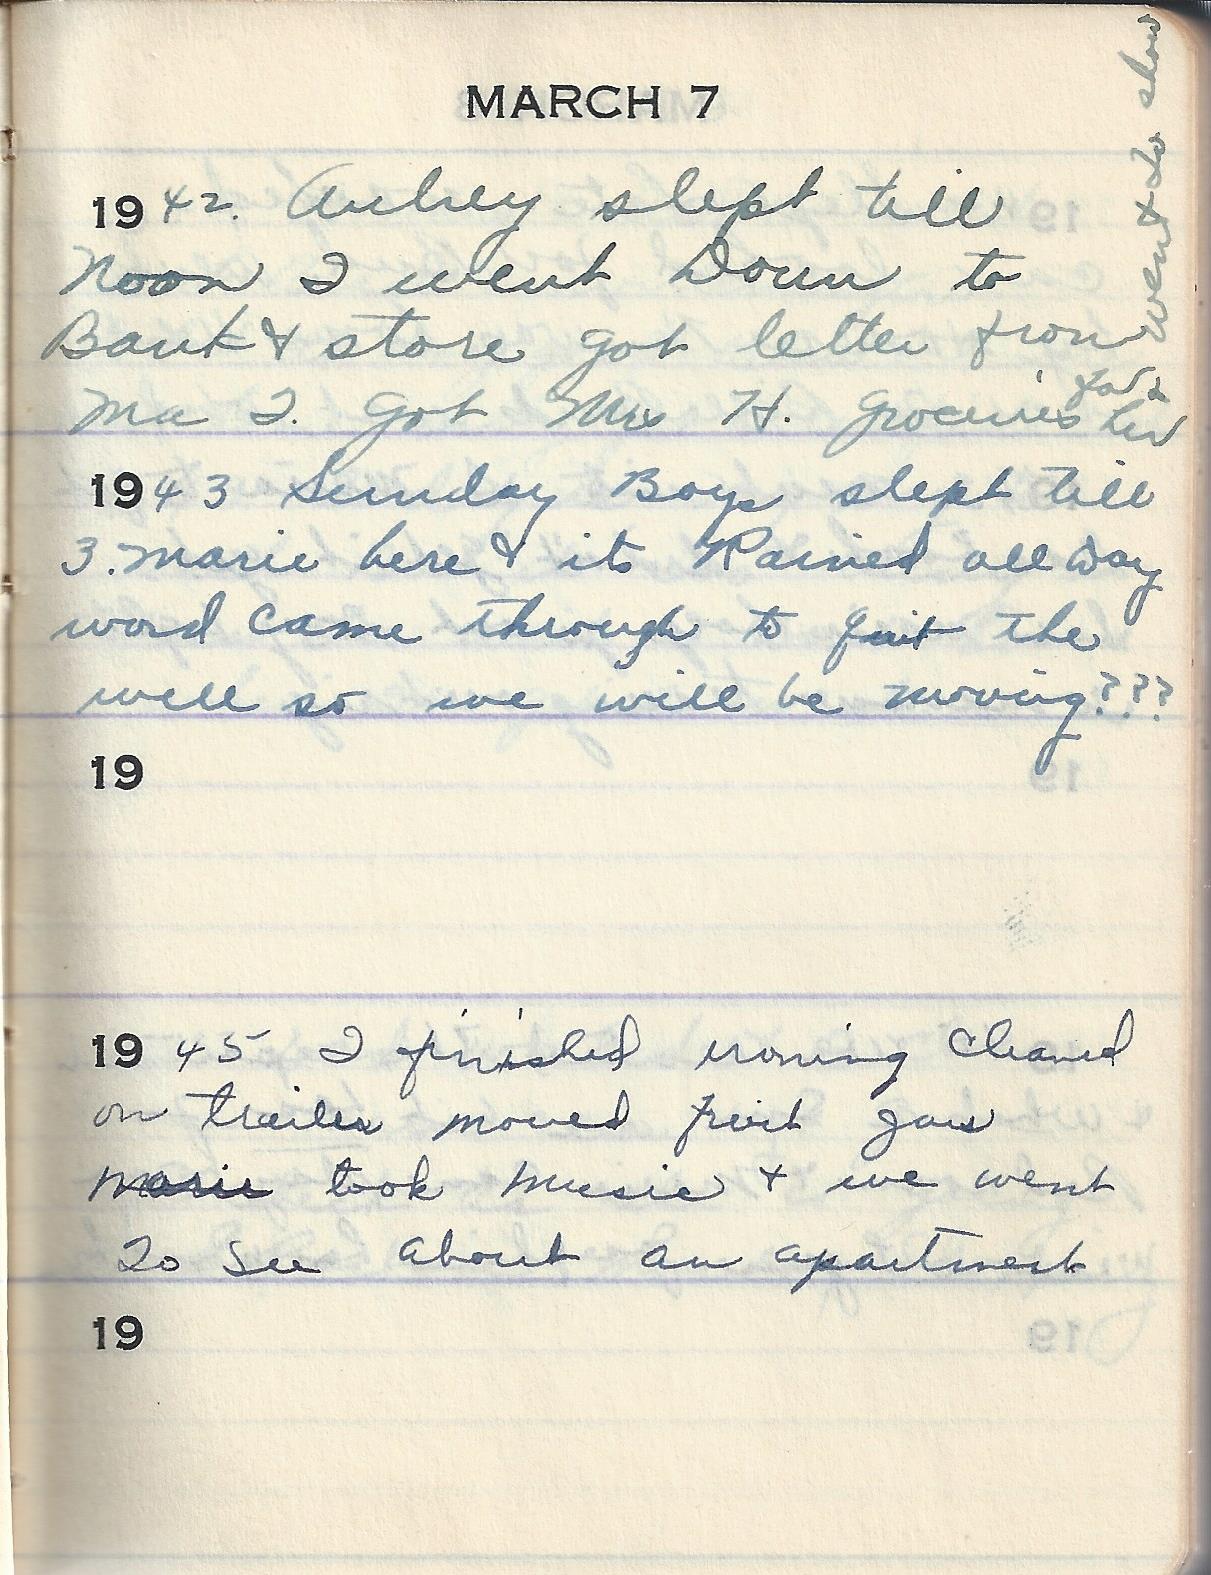 MARCH 7
1942. Aubrey slept till
Noon I went Down to
Bank & store got letter from
Ma I. got Mrs H. groceries for
her
& went to show
1943 Sunday Boys slept till
3. Marie here & its Rained all Day
word came through to quit the
well so we will be moving???
19
1945 I finished ironing Cleaned
on trailer moved fruit jars
Marie took music & we went
To See about an apartment
19